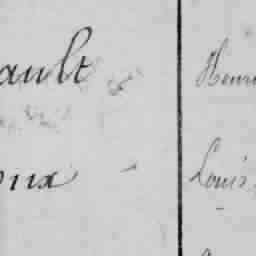 ault Henri
oux Louis